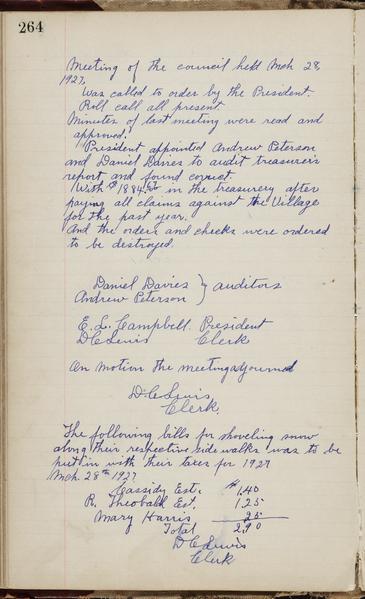 264
Meeting of the council held Mch 28,
1927.
Was called to order by the President.
Roll call all present
Minutes of last meeting were read and
approved.
President appointed Andrew Peterson
and Daniel Davies to audit treasurers
report and found correct
With $1884 in the treasurery after
paying all claims against the Village
for the past year.
And the orders and checks were ordered
to be destroyed.
Daniel Davies } auditors
Andrew Peterson
E. L. Campbell. President
D C Lewis Clerk
On motion the meeting adjourned
D. C Lewis
Clerk.
The following bills for shoveling snow
along their respective side walks was to be
put in with their taxes for 1927
Mch. 28th 1927
Cassidy Est. $1.40
R. Theobald Est. 1 25
Mary Harris 25
Total 2.90
D C Lewis
Clerk